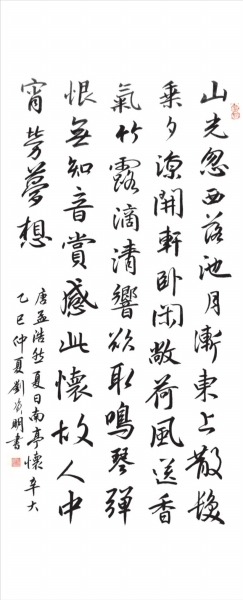 山光忽西落池月漸東上散髮
乘夕涼開軒卧閑敞荷風送香
氣竹露滴清響欲取鳴琴彈
恨無知音賞感此懷故人中
宵勞夢想
唐孟浩然夏日南亭懷辛大
乙巳仲夏劉明書